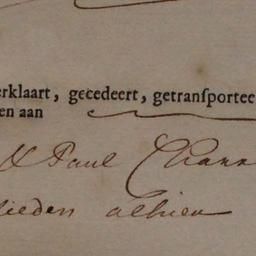 erklaart, gecedeert, getransportee
en aan
& Paul Chan
lieden alhier